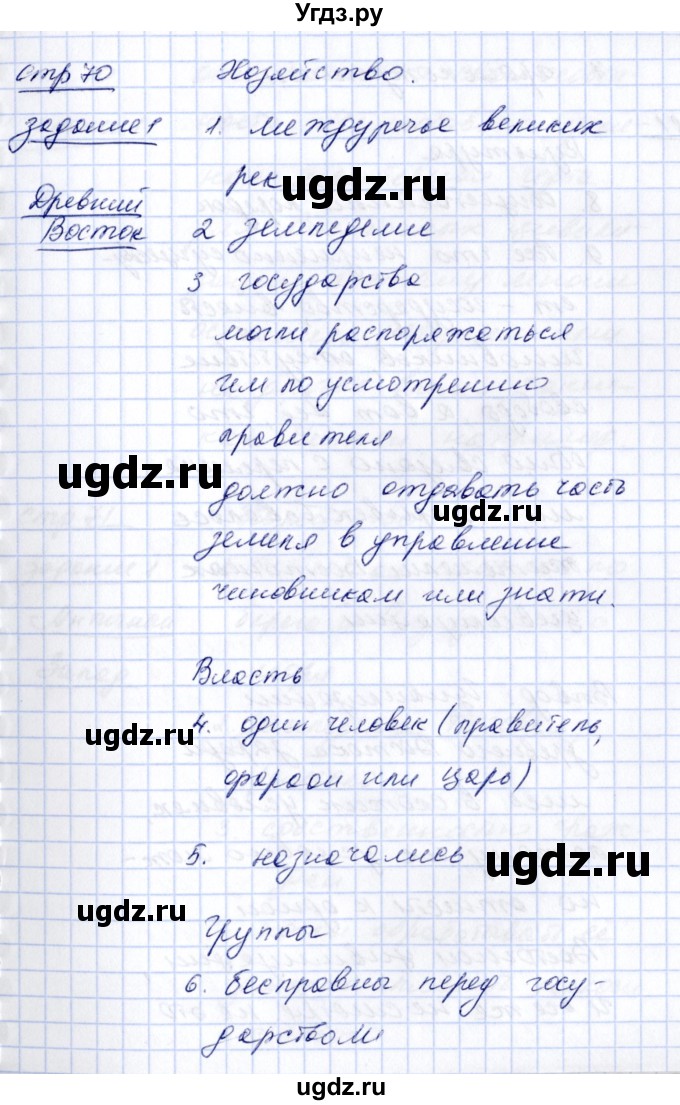 Угдз.ру
стр 70 Хозяйство.
задание 1 1. Междуречье великих
рек
ugdz.ru
Древний
Восток 2 земледелие
3 государства
могли распоряжаться
им по усмотрению
правителя
ugdz.ru
должно отдавать часть
ugdz.ru
земель в управление
чиновникам или знати.
Власть
4. один человек (правитель,
ugdz.ru
фараон или царь)
5. назначались
ugdz.ru
ugdz.ru
Группы
6. бесправны перед госу-
дарством
ugdz.ru